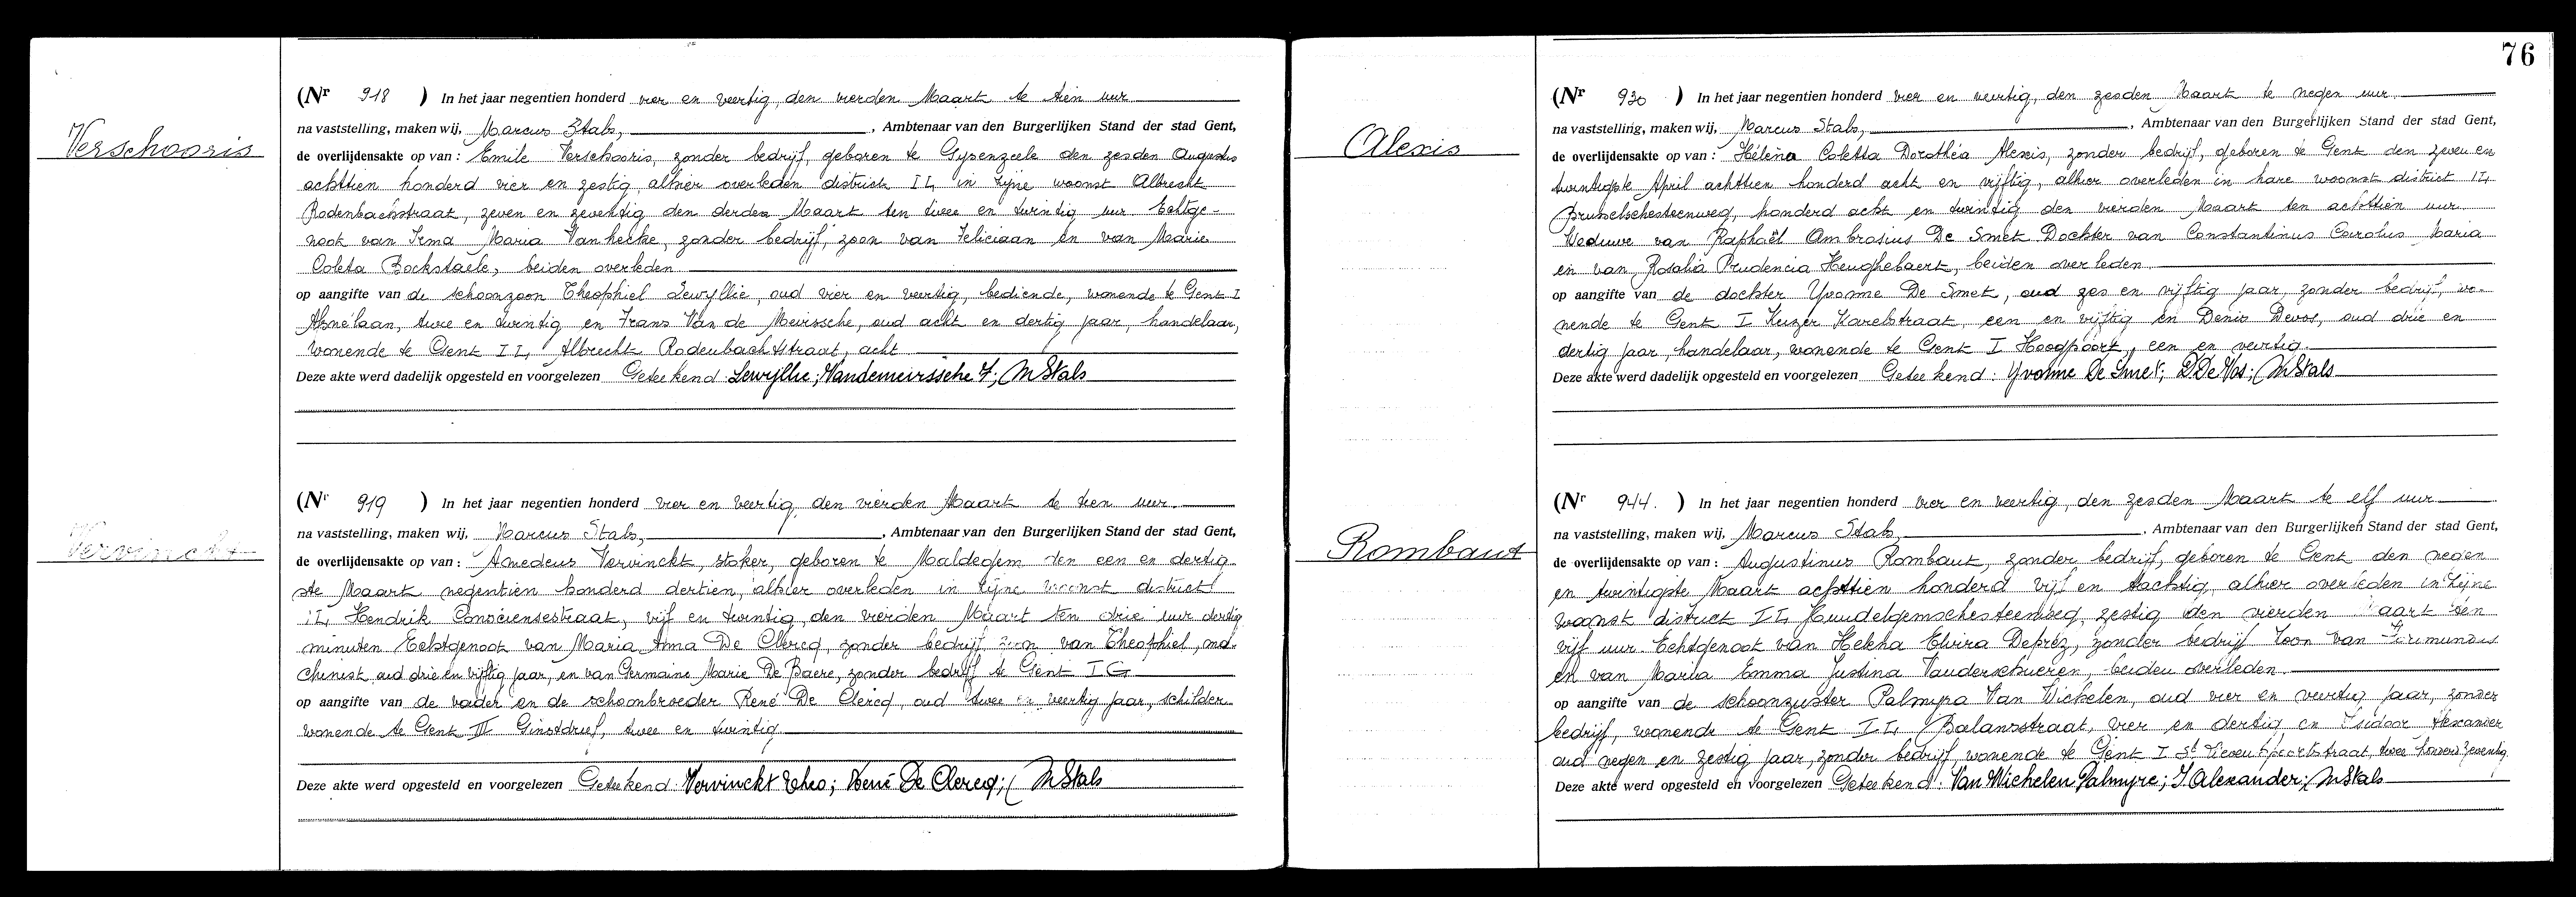 Verschooris
(Nr 918 ) In het jaar negentien honderd vier en veertig, den vierden Maart te tien uur
na vaststelling, maken wij, Marcus Stals, , Ambtenaar van den Burgerlijken Stand der stad Gent,
de overlijdensakte op van : Emile Verschooris, zonder bedrijf, geboren te Gysenzeele den zesden Augustus
achttien honderd vier en zestig, alhier overleden district II, in zijne woonst Albrecht
Rodenbachstraat, zeven en zeventig den derden Maart ten twee en twintig uur Echtge-
noot van Irma Maria Vanhecke, zonder bedrijf, zoon van Feliciaan en van Marie
Coleta Bockstaele, beiden overleden
op aangifte van de schoonzoon Theophiel Lewyllie, oud vier en veertig, bediende, wonende te Gent I
Abnélaan, twee en twintig en Frans Van de Meirssche, oud acht en dertig jaar, handelaar,
wonende te Gent II, Albrecht Rodenbachstraat, acht
Deze akte werd dadelijk opgesteld en voorgelezen Geteekend: Lewyllie; Vandemeirssche F; M Stals
Vervinckt
(Nr 919 ) In het jaar negentien honderd vier en veertig, den vierden Maart te tien uur.
na vaststelling, maken wij, Marcus Stals, , Ambtenaar van den Burgerlijken Stand der stad Gent,
de overlijdensakte op van : Amedeus Vervinckt, stoker, geboren te Maldegem den een en dertig-
ste Maart negentien honderd dertien, alhier overleden in zijne woonst district
II, Hendrik Consciensestraat, vijf en twintig, den vierden Maart ten drie uur dertig
minuten Echtgenoot van Maria Anna De Clercq, zonder bedrijf zoon van Theophiel, ma-
chinist, oud drie en vijftig jaar, en van Germaine Marie De Baere, zonder bedrijf te Gent I G
op aangifte van de vader en de schoonbroeder René De Clercq, oud twee en veertig jaar, schilder
wonende te Gent III Ginstdreef, twee en twintig
Deze akte werd opgesteld en voorgelezen Geteekend: Vervinckt Theo; René De Clercq; M Stals
76
Alexis
(Nr 930 ) In het jaar negentien honderd vier en veertig, den zesden Maart te negen uur.
na vaststelling, maken wij, Marcus Stals, , Ambtenaar van den Burgerlijken Stand der stad Gent,
de overlijdensakte op van : Héléna Coletta Dorothéa Alexis, zonder bedrijf, geboren te Gent den zeven en
twintigste April achttien honderd acht en vijftig, alhier overleden in hare woonst district II,
Brusselschesteenweg, honderd acht en twintig den vierden Maart ten achttien uur
Weduwe van Raphaël Ambrosius De Smet Dochter van Constantinus Carolus Maria
en van Rosalia Prudencia Heughebaert, beiden overleden.
op aangifte van de dochter Yvonne De Smet, oud zes en vijftig jaar, zonder bedrijf, wo-
nende te Gent I Keizer Karelstraat, een en vijftig en Denis Devos, oud drie en
dertig jaar, handelaar, wonende te Gent I Hoogpoort, een en veertig.
Deze akte werd dadelijk opgesteld en voorgelezen Geteekend: Yvonne De Smet; D De Vos; M Stals
Rombaut
(Nr 944. ) In het jaar negentien honderd vier en veertig, den zesden Maart te elf uur
na vaststelling, maken wij, Marcus Stals, . Ambtenaar van den Burgerlijken Stand der stad Gent,
de overlijdensakte op van : Augustinus Rombaut, zonder bedrijf, geboren te Gent den negen
en twintigste Maart achttien honderd vijf en tachtig, alhier overleden in zijne
woonst district II, Hundelgemschesteenweg, zestig den vierden Maart ten
vijf uur Echtgenoot van Helena Elvira Deprez, zonder bedrijf zoon van
en van Maria Emma Justina Vanderschueren, beiden overleden.
op aangifte van de schoonzuster Palmyra Van Wichelen, oud vier en veertig jaar, zonder
bedrijf, wonende te Gent II, Balansstraat, vier en dertig en Isidoor Alexander
oud negen en zestig jaar, zonder bedrijf, wonende te Gent I St Lievenspoortstraat, twee honderd zeventig.
Deze akte werd opgesteld en voorgelezen Geteekend: Van Wichelen Palmyre; I. Alexander; M Stals